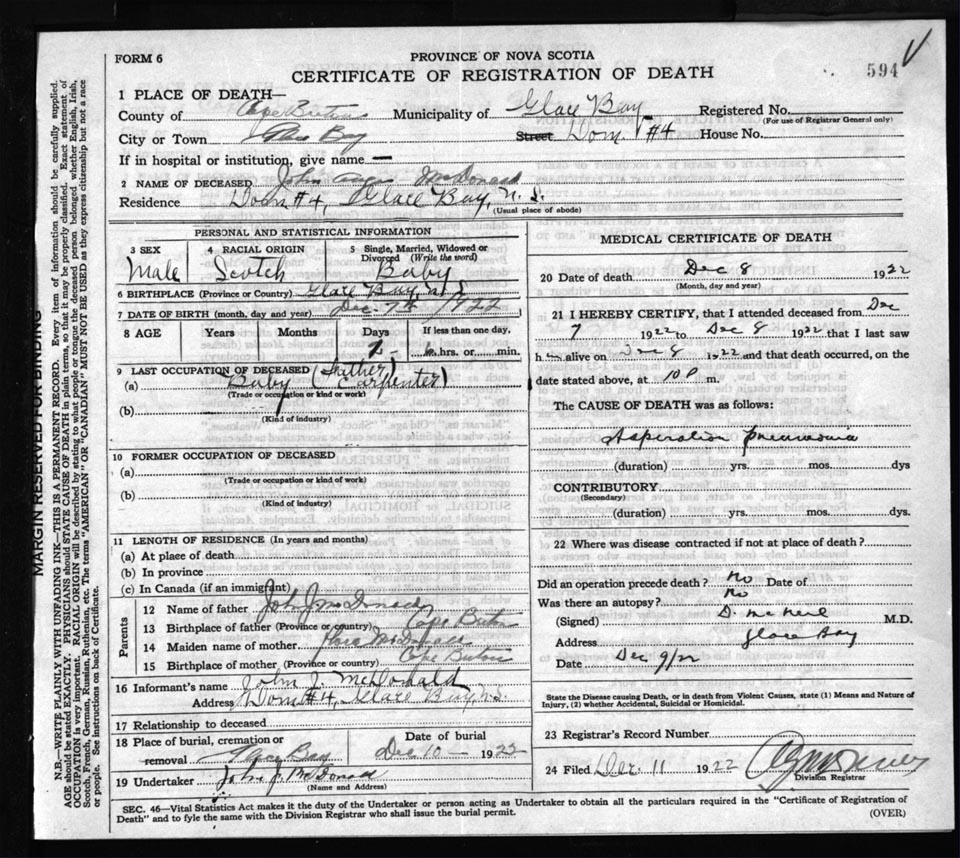 FORM 6
PROVINCE OF NOVA SCOTIA
CERTIFICATE OF REGISTRATION OF DEATH
594
1 PLACE OF DEATH—
County of Cape Breton Municipality of Glace Bay Registered No.
(For use of Registrar General only)
City or Town Glace Bay Street Dom #4 House No.
If in hospital or institution, give name —
2 NAME OF DECEASED John Angus McDonald
Residence Dom #4, Glace Bay, N. S.
(Usual place of abode)
PERSONAL AND STATISTICAL INFORMATION
3 SEX 4 RACIAL ORIGIN 5 Single, Married, Widowed or Divorced (Write the word)
Male Scotch Baby
6 BIRTHPLACE (Province or Country) Glace Bay, N S
7 DATE OF BIRTH (month, day and year) Dec. 7th 1922
8 AGE Years Months Days If less than one day,
6 hrs. or min.
9 LAST OCCUPATION OF DECEASED
(a) Baby (Father Carpenter)
(Trade or occupation or kind of work)
(b)
(Kind of industry)
10 FORMER OCCUPATION OF DECEASED
(a)
(Trade or occupation or kind of work)
(b)
(Kind of industry)
11 LENGTH OF RESIDENCE (In years and months)
(a) At place of death
(b) In province
(c) In Canada (if an immigrant)
Parents
12 Name of father John J McDonald
13 Birthplace of father (Province or country) Cape Breton
14 Maiden name of mother McDonald
15 Birthplace of mother (Province or country) Cape Breton
16 Informant's name John J. McDonald
Address Dom #4, Glace Bay, N.S.
17 Relationship to deceased
18 Place of burial, cremation or removal Glace Bay
Date of burial Dec 10 — 1922
19 Undertaker John J. McDonald
(Name and Address)
MEDICAL CERTIFICATE OF DEATH
20 Date of death Dec 8 1922
(Month, day and year)
21 I HEREBY CERTIFY, that I attended deceased from Dec
7 1922 to Dec 8 1922 that I last saw
h im alive on Dec 8 1922 and that death occurred, on the
date stated above, at 10 P m.
The CAUSE OF DEATH was as follows:
Asperation pneumonia
(duration) yrs. mos. dys
CONTRIBUTORY
(Secondary)
(duration) yrs. mos. dys.
22 Where was disease contracted if not at place of death?
Did an operation precede death? No Date of
Was there an autopsy? No
(Signed) D. McNeil M.D.
Address Glace Bay
Date Dec 9/22
State the Disease causing Death, or in death from Violent Causes, state (1) Means and Nature of
Injury, (2) whether Accidental, Suicidal or Homicidal.
23 Registrar's Record Number
24 Filed Dec. 11 1922
Division Registrar
SEC. 46—Vital Statistics Act makes it the duty of the Undertaker or person acting as Undertaker to obtain all the particulars required in the "Certificate of Registration of
Death" and to fyle the same with the Division Registrar who shall issue the burial permit. (OVER)
MARGIN RESERVED FOR BINDING
N.B.—WRITE PLAINLY WITH UNFADING INK—THIS IS A PERMANENT RECORD. Every item of information should be carefully supplied.
AGE should be stated EXACTLY. PHYSICIANS should STATE CAUSE OF DEATH in plain terms, so that it may be properly classified. Exact statement of
OCCUPATION is very important. RACIAL ORIGIN will be described by stating to what people or tongue the deceased person belonged, whether English, Irish,
Scotch, French, German, Russian, Ruthenian, etc. The terms "AMERICAN" OR "CANADIAN" MUST NOT BE USED as they express citizenship but not a race
or people. See instructions on back of Certificate.